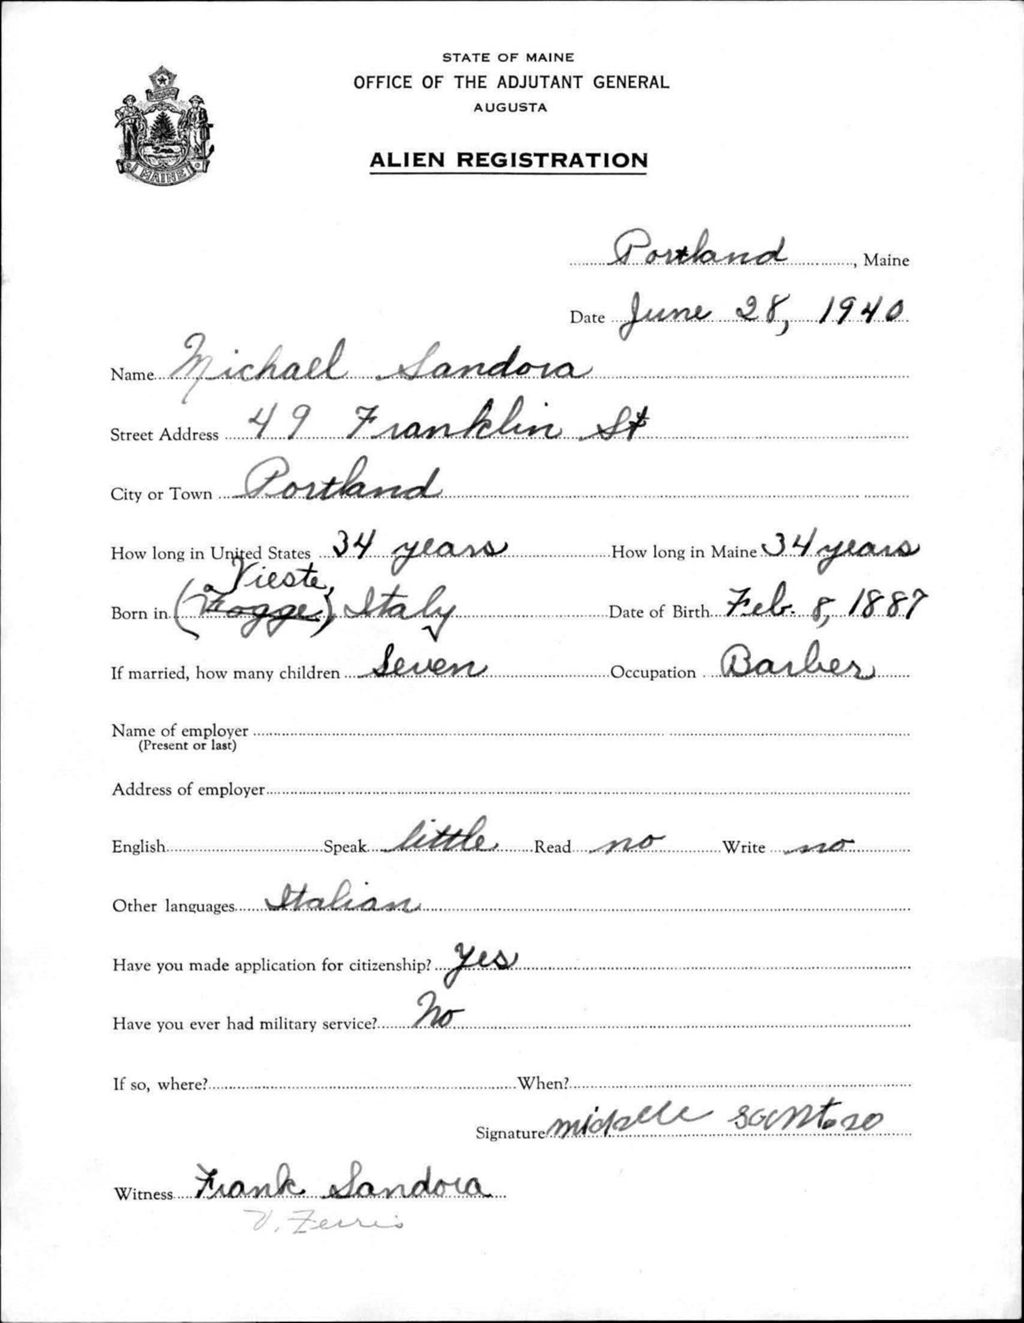 STATE OF MAINE
OFFICE OF THE ADJUTANT GENERAL
AUGUSTA
ALIEN REGISTRATION
MAINE
Portland, Maine
Date June 28, 1940
Name Michael Sandora
Street Address 49 Franklin St
City or Town Portland
How long in United States 34 years How long in Maine 34 years
Vieste,
Born in (Fogge) Italy Date of Birth Feb. 8, 1887
If married, how many children Seven Occupation Barber
Name of employer
(Present or last)
Address of employer
English Speak little Read no Write no
Other languages Italian
Have you made application for citizenship? Yes
Have you ever had military service? No
If so, where? When?
Signature
Witness Frank Sandora
V. Ferris